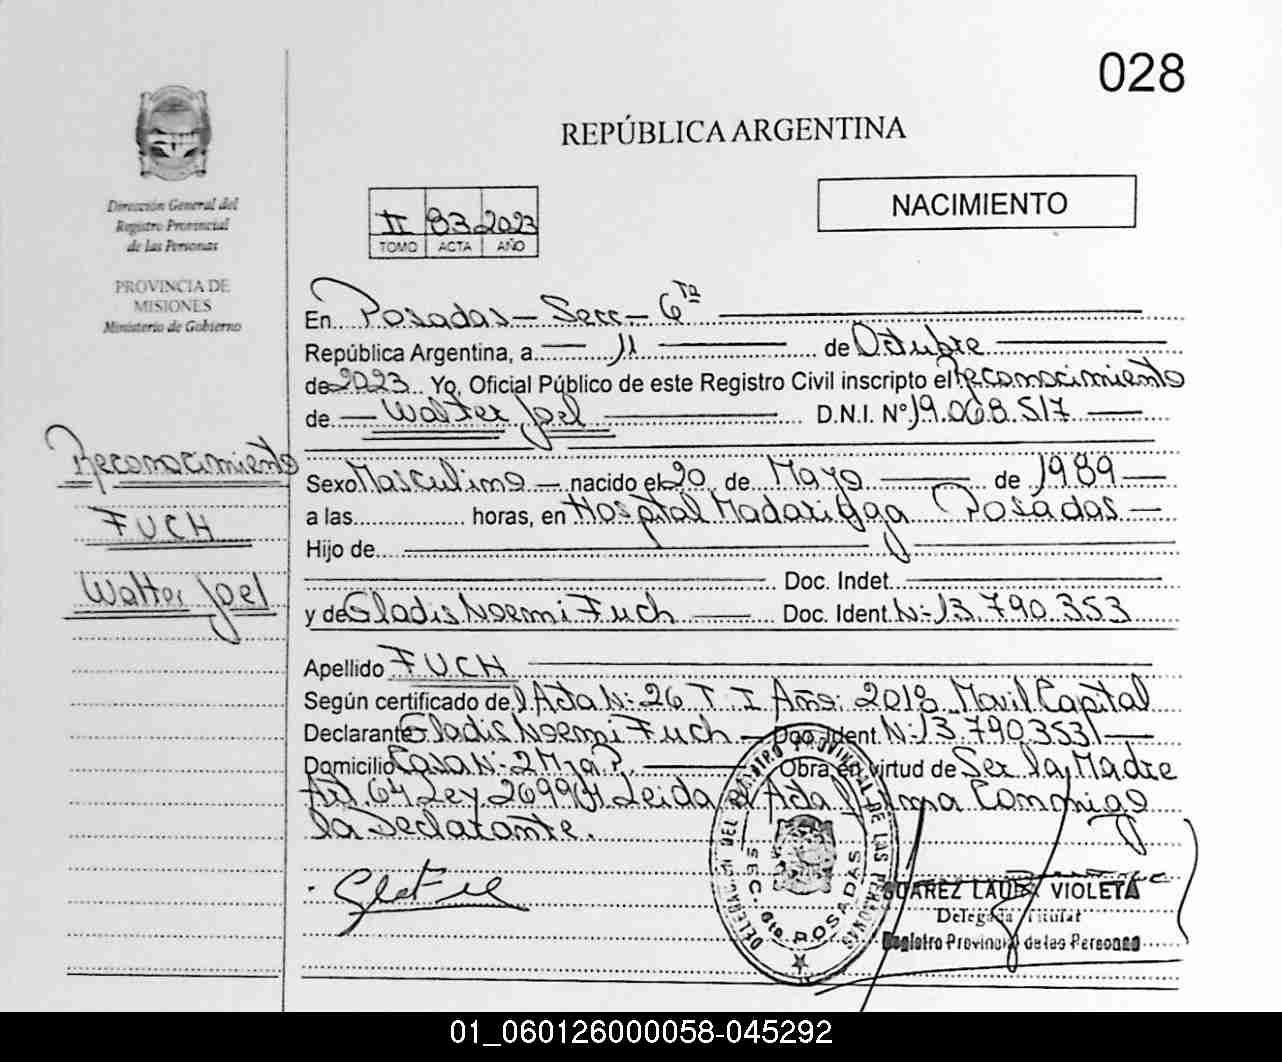 028
REPÚBLICA ARGENTINA
NACIMIENTO
Dirección General del
Registro Provincial
de las Personas
PROVINCIA DE
MISIONES
Ministerio de Gobierno
II 83 2023
TOMO ACTA AÑO
En Posadas - Secc - 6ta
República Argentina, a 11 de Octubre
de 2023 Yo, Oficial Público de este Registro Civil inscripto el Reconocimiento
de Walter Joel D.N.I. N° 19.068.517
Reconocimiento
FUCH
Walter Joel
Sexo Masculino nacido el 20 de Mayo de 1989
a las horas, en Hospital Madariaga Posadas
Hijo de
Doc. Indet.
y de Gladis Noemi Fuch Doc. Ident. N: 13.790.353
Apellido FUCH
Según certificado del Acta N: 26 T. I Año: 2018 Movil Capital
Declarante Gladis Noemi Fuch Doc. Ident. N: 13.790.353
Domicilio Casa N: 2 Mza P. Obra en virtud de Ser la Madre
Art. 64 Ley 26994 Leida el Acta firma Conmigo
la Declarante.
DELEGACION DEL REGISTRO PROVINCIAL DE LAS PERSONAS
SECC. 6ta. POSADAS
SUAREZ VIOLETA
Delegada Titular
Registro Provincial de las Personas
01_060126000058-045292